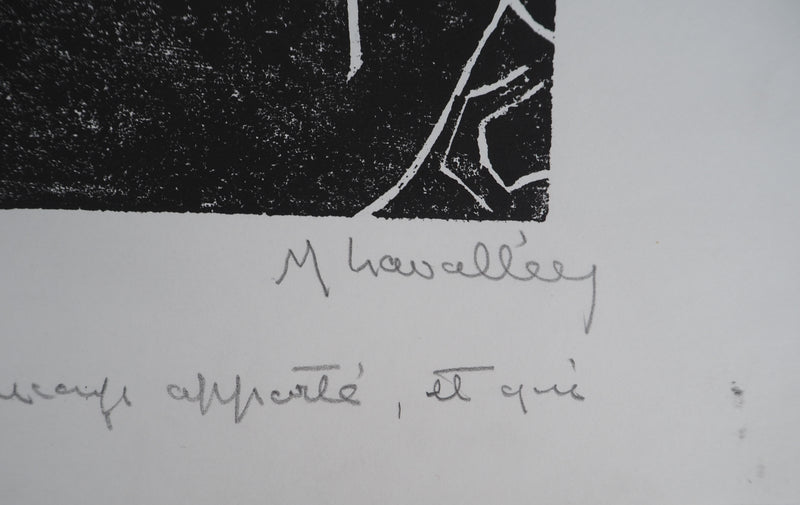 M Lavallée
apporté, et qui